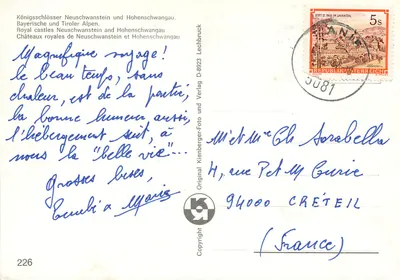 Königsschlösser Neuschwanstein und Hohenschwangau,
Bayerische und Tiroler Alpen.
Royal castles Neuschwanstein and Hohenschwangau
Châteaux royales de Neuschwanstein et Hohenschwangau
Magnifique voyage!
le beau temps, sans
chaleur, est de la partie,
la bonne humeur, aussi,
l'hébergement suit, à
nous la "belle vie"...
Grosses bises,
Marie
226
Copyright
Original Kienberger-Foto und Verlag D-8923 Lechbruck
5s
REPUBLIK ÖSTERREICH
5081
M' et Mme Ch. Sorabella
4, rue P et M Curie
94000 CRÉTEIL
(France)